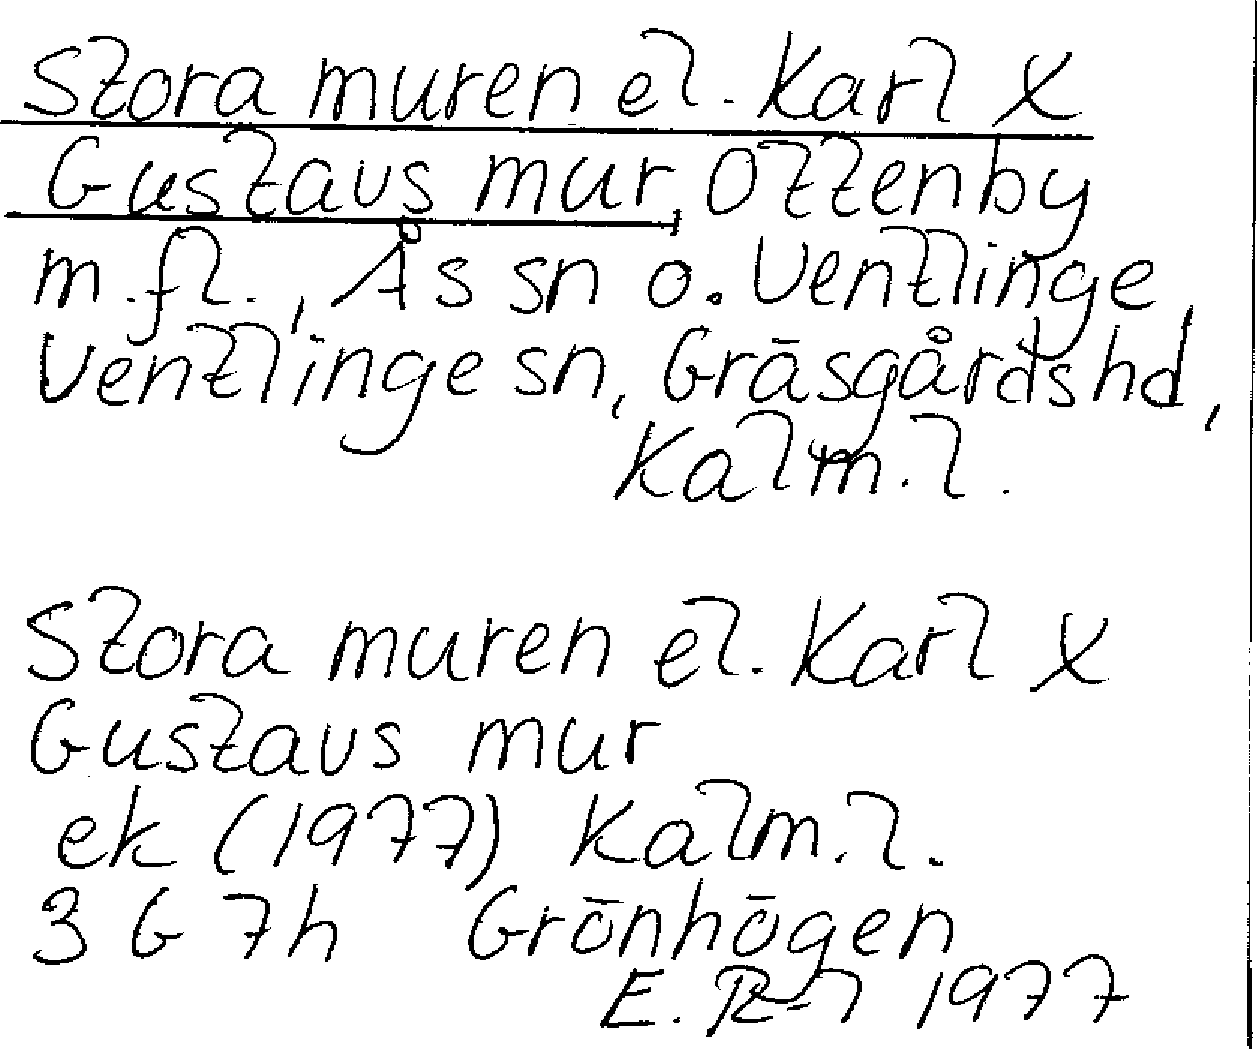 Stora muren el. Karl X
Gustavs mur, Ottenby
m.fl., Ås sn o. Ventlinge,
Ventlinge sn, Gräsgårds hd,
Kalm.l.
Stora muren el. Karl X
Gustavs mur
ek (1977) Kalm.l.
3 G 7h Grönhögen
E. 1977